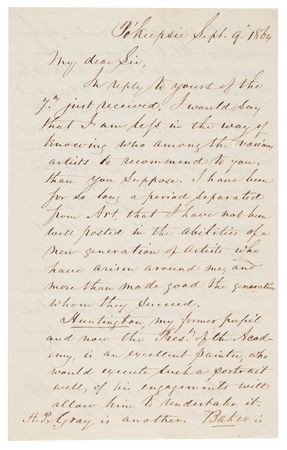 Po'Keepsie Sept. 9th 1864
My dear Sir,
In reply to yours of the
7th just received, I would say
that I am less in the way of
knowing who among the various
artists to recommend to you,
than you suppose. I have been
for so long a period separated
from Art that I have not been
well posted in the abilities of a
new generation of artists who
have arisen around me, and
more than made good the generation
whom they succeed.
Huntington my former pupil
and now the Prest. of the Acad-
emy, is an excellent painter, who
would execute such a portrait
well, if his engagements will
allow him to undertake it.
H. P. Gray is another. Baker is